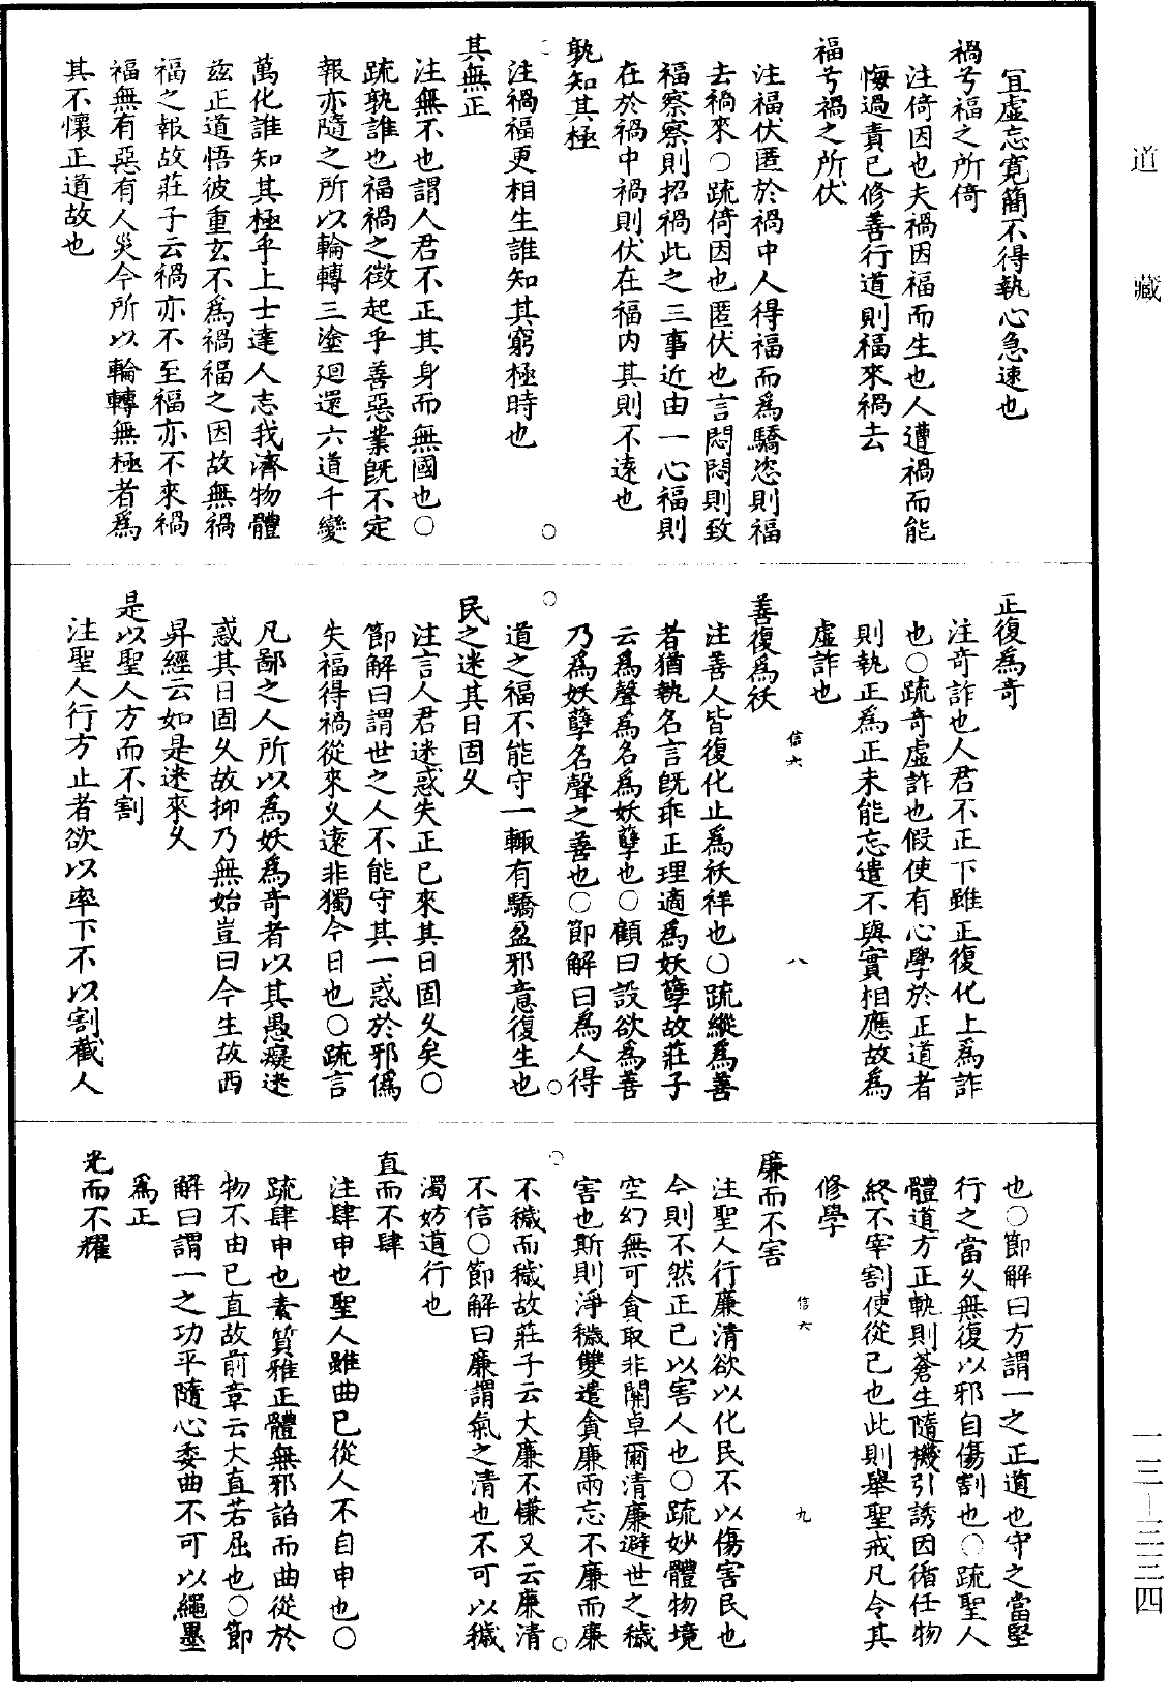 道藏
宜虛忘寬簡不得執心急速也
禍兮福之所倚
注倚因也夫禍因福而生也人遭禍而能
悔過責己修善行道則福來禍去
福兮禍之所伏
注福伏匿於禍中人得福而為驕恣則福
去禍來○疏倚因也匿伏也言悶悶則致
福察察則招禍此之三事近由一心福則
在於禍中禍則伏在福內其則不遠也
孰知其極
注禍福更相生誰知其窮極時也
其無正
注無不也謂人君不正其身而無國也○
疏孰誰也福禍之徵起乎善惡業既不定
報亦隨之所以輪轉三塗迴還六道千變
萬化誰知其極乎上士達人志我濟物體
茲正道悟彼重玄不為禍福之因故無禍
福之報故莊子云禍亦不至福亦不來禍
福無有惡有人災今所以輪轉無極者為
其不懷正道故也
正復為奇
注奇詐也人君不正下雖正復化上為詐
也○疏奇虛詐也假使有心學於正道者
則執正為正未能忘遣不與實相應故為
虛詐也
善復為祅
信六 八
注善人皆復化止為祅祥也○疏縱為善
者猶執名言既乖正理適為妖孽故莊子
云為聲為名為妖孽也○顧曰設欲為善
乃為妖孽名聲之善也○節解曰為人得
道之福不能守一輙有驕盈邪意復生也
民之迷其日固久
注言人君迷惑失正已來其日固久矣○
節解曰謂世之人不能守其一惑於邪偽
失福得禍從來久遠非獨今日也○疏言
凡鄙之人所以為妖為奇者以其愚癡迷
惑其日固久故抑乃無始豈曰今生故西
昇經云如是迷來久
是以聖人方而不割
注聖人行方止者欲以率下不以割截人
也○節解曰方謂一之正道也守之當堅
行之當久無復以邪自傷割也○疏聖人
體道方正軌則蒼生隨機引誘因循任物
終不宰割使從己也此則舉聖戒凡令其
修學
廉而不害
信六 九
注聖人行廉清欲以化民不以傷害民也
今則不然正己以害人也○疏妙體物境
空幻無可貪取非關卓爾清廉避世之穢
害也斯則淨穢雙遣貪廉兩忘不廉而廉
不穢而穢故莊子云大廉不慊又云廉清
不信○節解曰廉謂氣之清也不可以穢
濁妨道行也
直而不肆
注肆申也聖人雖曲己從人不自申也○
疏肆申也素質雅正體無邪諂而曲從於
物不由己直故前章云大直若屈也○節
解曰謂一之功平隨心委曲不可以繩墨
為正
光而不耀
一三—三三四